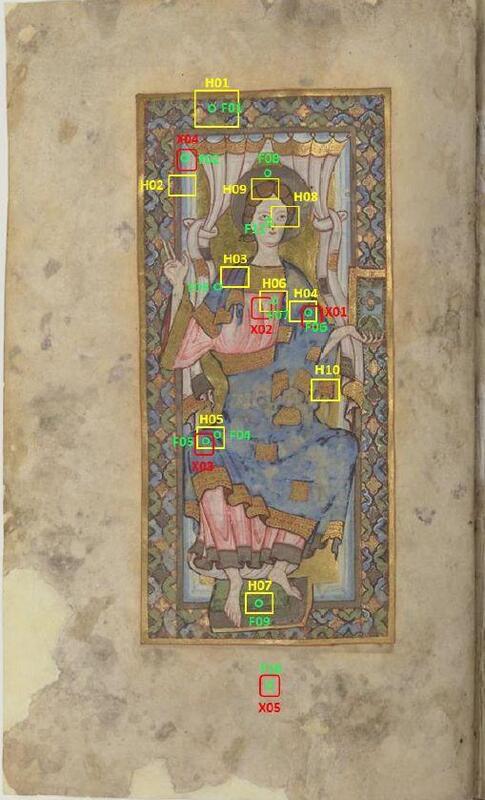 H01
F01
X04
H02
F08
H09
H08
F12
H03
H06
H04
X01
X02
F06
H10
H05
F05
F04
X03
H07
F09
X05